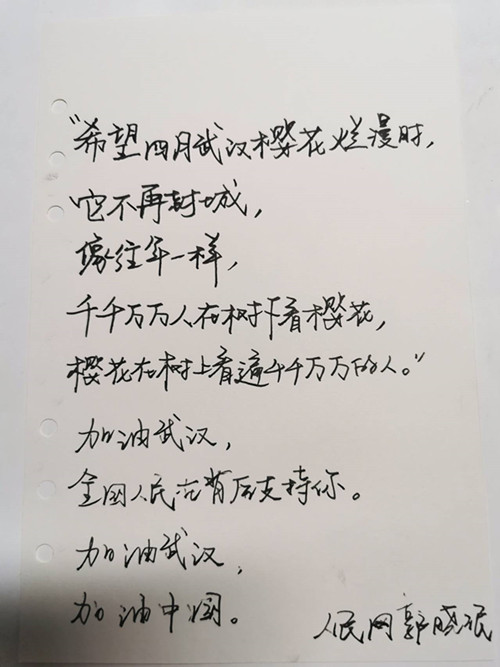 “希望四月武汉樱花烂漫时，
它不再封城，
像往年一样，
千千万万人在树下看樱花，
樱花在树上看遍千千万万的人。”
加油武汉，
全国人民在背后支持你。
加油武汉，
加油中国。
人民网郭晓珉